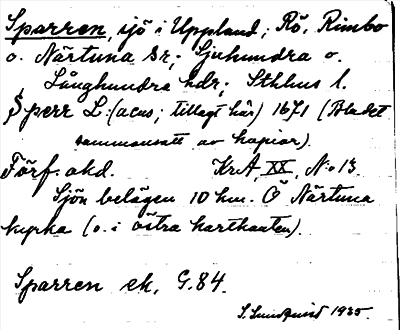 Sparren, sjö i Uppland; Rö, Rimbo
o. Närtuna sr; Sjuhundra o.
Långhundra hdr; Sthlms l.
Sperr L: (acus; tillagt här) 1671 (Bladet
sammansatt av kopior).
Förf. okd. KrA, XX, N:o 13.
Sjön belägen 10 km. Ö Närtuna
kyrka (o. i östra kartkanten).
Sparren ek, G.84.
S. Sundqvist 1935.